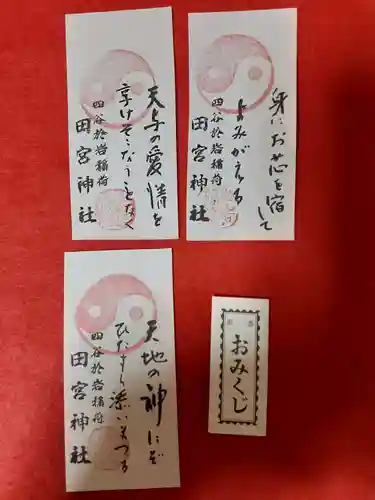 天与の愛情を
享けそこなうことなく
四谷於岩稲荷
田宮神社
身にお芯を宿して
よみがえる
四谷於岩稲荷
田宮神社
天地の神にぞ
ひたすら添いまつる
四谷於岩稲荷
田宮神社
おみくじ